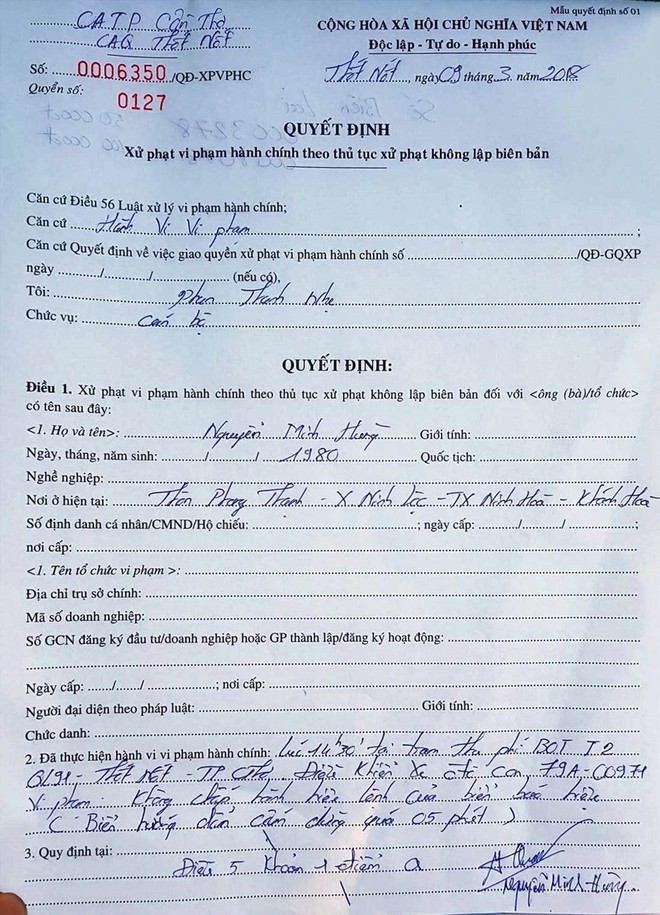 Mẫu quyết định số 01
CATP Cần Thơ
CỘNG HÒA XÃ HỘI CHỦ NGHĨA VIỆT NAM
CAQ Thốt Nốt
Độc lập - Tự do - Hạnh phúc
Số: 0006350/QĐ-XPVPHC
Thốt Nốt, ngày 09 tháng 3 năm 2018
Quyển số: 0127
QUYẾT ĐỊNH
Xử phạt vi phạm hành chính theo thủ tục xử phạt không lập biên bản
Căn cứ Điều 56 Luật xử lý vi phạm hành chính;
Căn cứ Hành Vi Vi phạm ;
Căn cứ Quyết định về việc giao quyền xử phạt vi phạm hành chính số /QĐ-GQXP
ngày / / (nếu có),
Tôi: Phan Thanh Nhẹ
Chức vụ: cán bộ
QUYẾT ĐỊNH:
Điều 1. Xử phạt vi phạm hành chính theo thủ tục xử phạt không lập biên bản đối với <ông (bà)/tổ chức>
có tên sau đây:
<1. Họ và tên>: Nguyễn Minh Hùng Giới tính:
Ngày, tháng, năm sinh: / / 1980 Quốc tịch:
Nghề nghiệp:
Nơi ở hiện tại: Thôn Phong Thạnh - X Ninh Lộc - TX Ninh Hoà - Khánh Hoà
Số định danh cá nhân/CMND/Hộ chiếu: ; ngày cấp: / / ;
nơi cấp:
<1. Tên tổ chức vi phạm >:
Địa chỉ trụ sở chính:
Mã số doanh nghiệp:
Số GCN đăng ký đầu tư/doanh nghiệp hoặc GP thành lập/đăng ký hoạt động:
Ngày cấp: / / ; nơi cấp:
Người đại diện theo pháp luật: Giới tính:
Chức danh:
2. Đã thực hiện hành vi vi phạm hành chính: Lúc 14h30' tại trạm thu phí BOT T2
QL91 - Thốt Nốt - TP CThơ, Điều Khiển Xe ôtô con, 79A-00971
Vi phạm: Không chấp hành hiệu lệnh của biển báo hiệu
( Biển hướng dẫn cấm dừng quá 05 phút )
3. Quy định tại:
Điều 5 khoản 1 điểm a
Nguyễn Minh Hùng